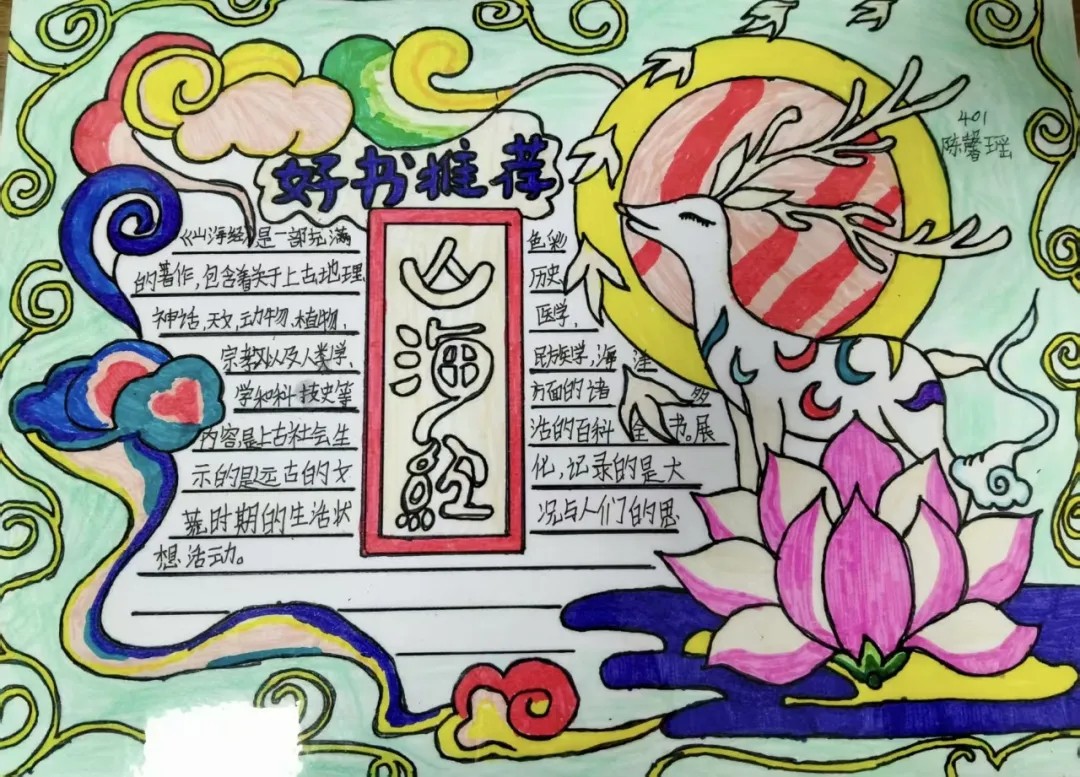 401
陈馨瑶
好书推荐
山海经
《山海经》是一部充满色彩
的著作，包含着关于上古地理、历史、
神话，天文，动物、植物、医学，
宗教以及人类学、民族医学，海洋
学和科技史等方面的诸多
内容是上古社会生活的百科全书。展
示的是远古的文化，记录的是大
荒时期的生活状况与人们的思
想活动。